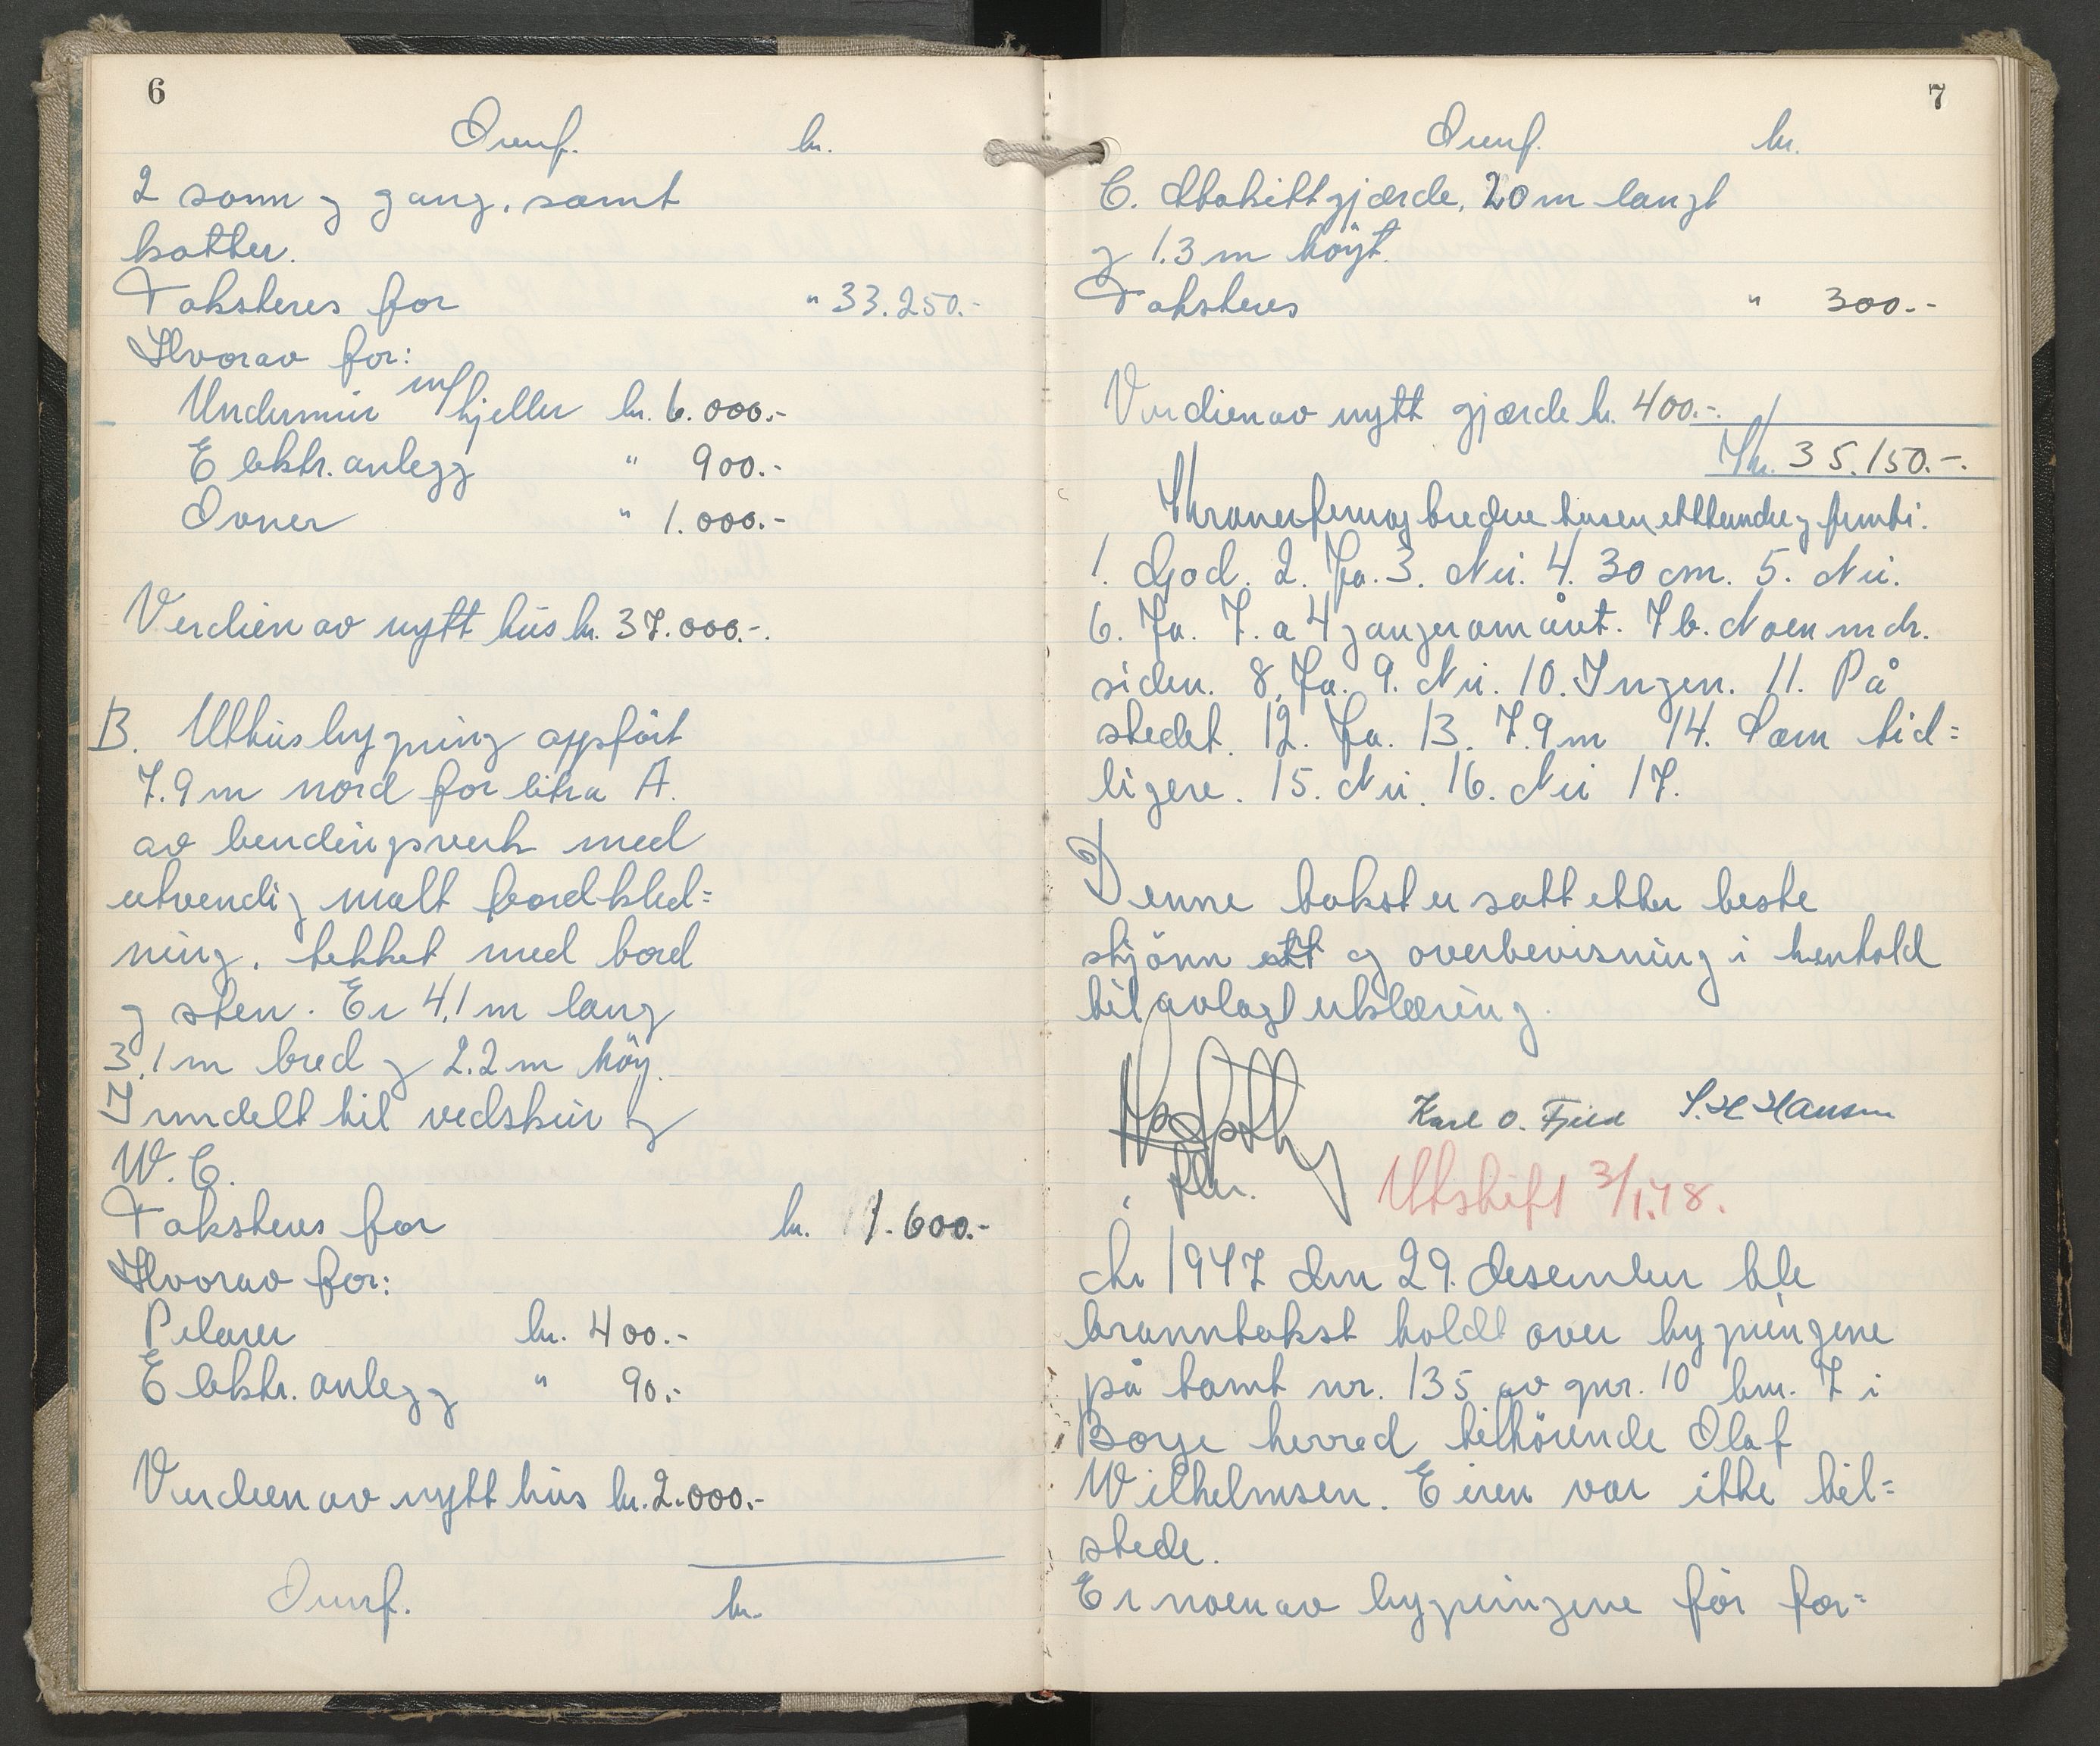 6
Overf. kr.
2 somr og gang, samt
kotter.
Taksteres for " 33.250.-
Hvorav for:
Undermur m/kjeller kr. 6.000.-
Elektr. anlegg " 900.-
Ovner " 1.000.-
Verdien av nytt hus kr. 37.000.-.
B. Uthusbygning oppført
7.9 m nord for litra A.
av bendingsverk med
utvendig malt bordkled=
ning, tekket med bord
og sten. Er 4,1 m lang
3,1 m bred og 2.2 m høy.
Inndelt til vedskur og
W.C.
Taksteres for kr. 1.600.-
Hvorav for:
Pelarer kr. 400.-
Elektr. anlegg " 90.-
Verdien av nytt hus kr. 2.000.-
Overf. kr.
7
Overf. kr.
C. Stakittgjærde, 20 m langt
og 1.3 m høyt.
Taksteres " 300.-
Verdien av nytt gjærde kr. 400.-.
Kr. 35.150.-.
Kroner femogtredve tusen etthundre og femti.
1. God. 2. Ja. 3. Nei. 4. 30 cm. 5. Nei.
6. Ja. 7. a 4 ganger om året. 7 b. Noen mdr.
siden. 8. Ja. 9. Nei. 10. Ingen. 11. På
stedet. 12. Ja. 13. 7.9 m 14. Som tid=
ligere. 15. Nei. 16. Nei 17.
Denne takst er satt etter beste
skjønn og overbevisning i henhold
til avlagt erklæring.
Karl O. Fjeld S. H Hansen
Utskift 3/1.48.
År 1947 den 29. desember ble
branntakst holdt over bygningene
på tomt nr. 135 av gnr. 10 bnr. 7 i
Borge herred tilhørende Olaf
Wilhelmsen. Eieren var ikke til=
stede.
Er noen av bygningene før for=